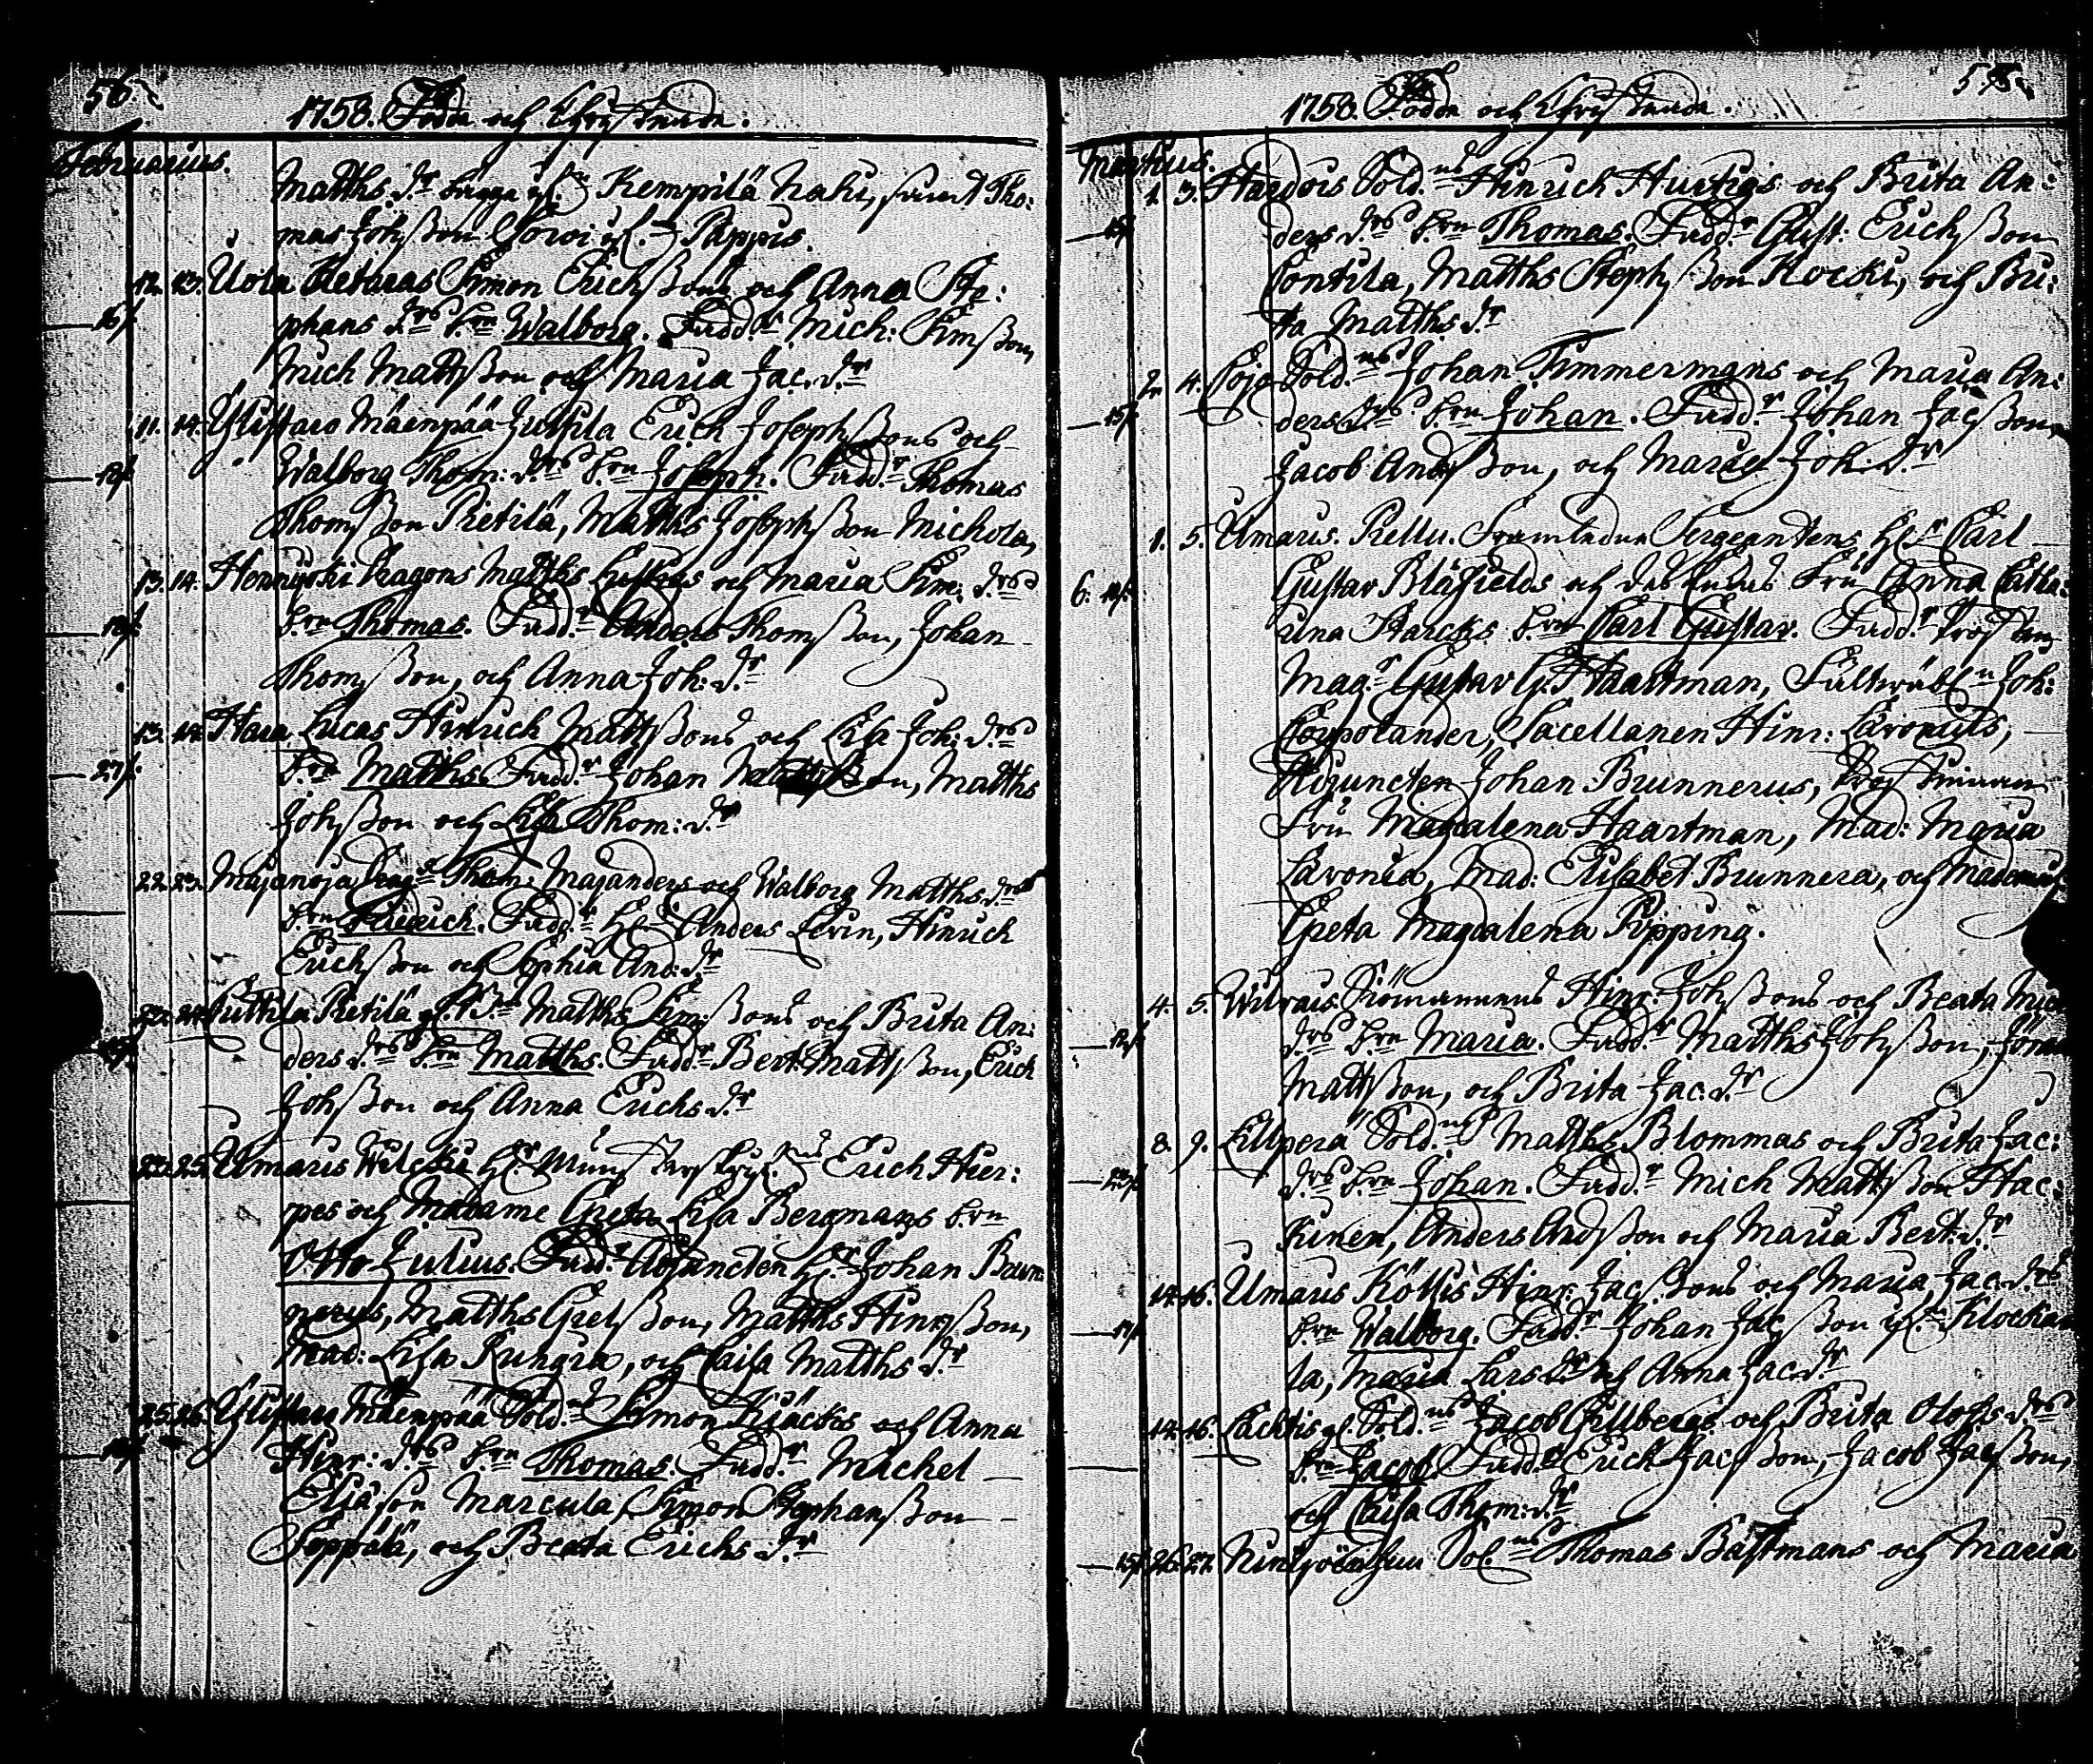 56.
1758. Födde och Christnade.
Februarius.
Matths d:r Kempilä Nahi, samt Tho:
mas Johsson Sorvi Pappis.
12. 13. Uotu Ketaras Simon Erichssons och Anna Ste:
16/. phans d:rs b:rn Walborg. Fadd:r Mich: Simsson
Mich Mattsson och Maria Jac. d:r
11. 14. Mäenpää Juthila Erich Josephssons och
12/. Walborg Thom: d:rs b:rn Joseph. Fadd:r Thomas
Thomsson Pietilä, Matths Josephsson Michola,
13. 14. Dragons Matths och Maria Sim: d:rs
18/. b:rn Thomas. Fadd:r Anders Thomsson, Johan
Thomsson, och Anna Joh: d:r
13. 14. Hara Lucas Hinrich Mattssons och Lisa Joh: d:rs
27/. b:rn Matths. Fadd:r Johan Mattsson, Matths
Johsson och Lisa Thom: d:r
22. 23. Majanoja Thom: Majanders och Walborg Matths. d:rs
b:rn Fridrich. Fadd:r H:r Anders Levin, Hinrich
Erichsson och Sophia And: d:r
Juthila Pietilä Matths Simssons och Brita An:
ders d:rs b:rn Matths. Fadd:r Bert: Mattsson, Erich
Johsson och Anna Erichs d:r
25. Umaris Wilcki H:r Erich Hier:
pes och Madame Greta Lisa Bergmans b:rn
Otto Julius. Fadd:r Adjuncten H:r Johan Brun:
nerus, Matths Grelsson, Matths Hinrsson,
Mad: Lisa Rungia, och Caisa Matths d:r
25. 26. Mäenpää Sold:ns Simon och Anna
Hinr: d:rs b:rn Thomas. Fadd:r Michel
Eliasson Marcula, Simon Stephansson
Seppälä, och Beata Erichs d:r
1758. Födde och Christnade.
Martius.
1. 3. Sold:ns Hinrich Hurtigs och Brita An:
15/. ders d:rs b:rn Thomas. Fadd:r Gust: Erichsson
Pontila, Matths Stephsson Kocki, och Bri:
ta Matths d:r
2. 4. Sold:ns Johan Timmermans och Maria An:
15/. ders d:rs b:rn Johan. Fadd:r Johan Jacsson,
Jacob Andsson, och Maria Joh: d:r
1. 5. Umaris. Prellu. Framledne Sergeantens H:r Carl
6. Gustav Blåfields och des Frus Fru Anna Catha:
rina Starcks b:rn Carl Gustav. Fadd:r Prosten
Mag:r Gustav G. Haartman, Fältwäbl:n Joh:
Corpolander, Sacellanen Hinr: Lavonius,
Adjuncten Johan Brunnerus, Prostinnan
Fru Magdalena Haartman, Mad: Maria
Lavonia, Mad: Elisabet Brunnera, och Mademois.
Greta Magdalena Pipping.
4. 5. Wilvais Hinr: Johssons och Beata Mich
12/. d:rs b:rn Maria. Fadd:r Matths Johsson, Jöran
Mattsson, och Brita Jac. d:r
8. 9. Ellpera Sold:ns Matths Blommas och Brita Jac:
23/. d:rs b:rn Johan. Fadd:r Mich Mattsson Hac:
kinen, Anders Andsson och Maria Bert: d:r
14. 16. Umaris Köllis Hinr: Jacssons och Maria Jac. d:rs
17/. b:rn Walborg. Fadd:r Johan Jacsson Klockar
la, Maria Lars d:r och Anna Jac. d:r
14. 16. Lachtis Sold:ns Jacob Gillbergs och Brita Olofs d:rs
b:rn Jacob. Fadd:r Erich Jacsson, Jacob Jacsson,
och Caisa Thom: d:r
15/. 26. 27. Sol:ns Thomas Båstmans och Maria